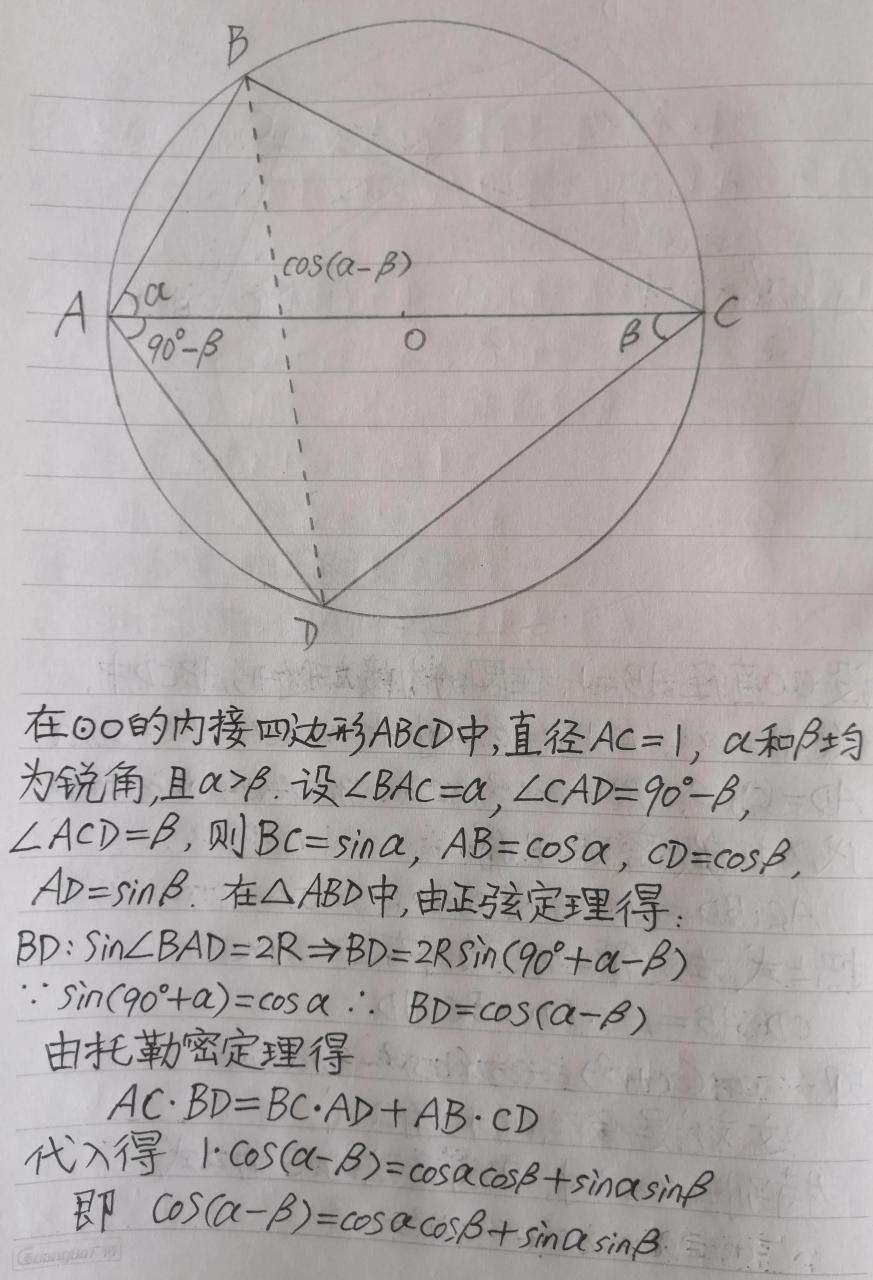 B
cos(α-β)
A
α
C
90°-β
O
β
D
在⊙O的内接四边形ABCD中,直径AC=1, α和β均
为锐角,且α>β.设∠BAC=α,∠CAD=90°-β,
∠ACD=β,则BC=sinα, AB=cosα, CD=cosβ,
AD=sinβ. 在△ABD中,由正弦定理得:
BD:sin∠BAD=2R⇒BD=2Rsin(90°+α-β)
∵sin(90°+α)=cosα ∴ BD=cos(α-β)
由托勒密定理得
AC·BD=BC·AD+AB·CD
代入得 1·cos(α-β)=cosαcosβ+sinαsinβ
即 cos(α-β)=cosαcosβ+sinαsinβ.